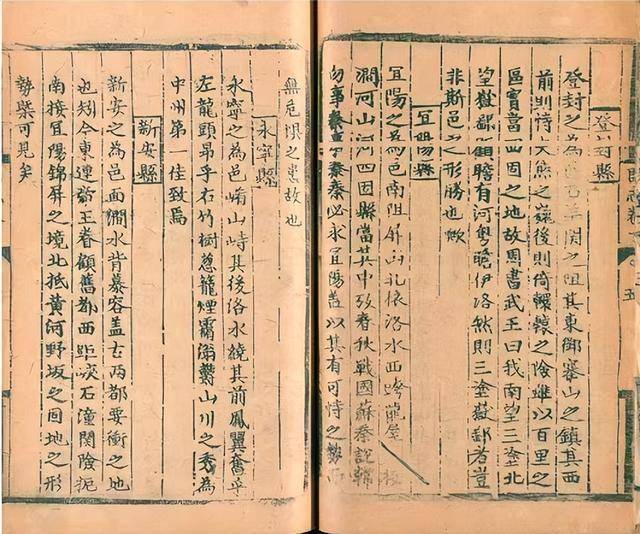 登封縣
登封之為邑關之阻其東鄉寨山之鎮其西
前則恃大熊之巍後則倚轘轅之險雖以百里之
區實當四固之地故周書武王曰我南望三塗北
望嶽鄙顧瞻有河粤瞻伊洛然則三塗嶽鄙者豈
非斯邑之形勝也歟
宜陽縣
宜陽之為邑南阻屏山北依洛水西跨龍屋
澗河山河四固縣當其中攷春秋戰國蘇秦説韓
事秦秦必求宜陽蓋以其有可恃之勢而
無危恨之患故也
永寧縣
永寧之為邑崤山峙其後洛水繞其前鳳翼奮乎
左龍頭昂乎右竹樹蔥蘢煙霏藹欝山川之秀為
中州第一佳致焉
新安縣
新安之為邑面澗水背慕容蓋古兩都要衝之地
也矧今東連齋王眷顧舊都西距硤石潼關險扼
南接宜陽錦屏之境北抵黄河野坂之固地之形
勢槩可見矣